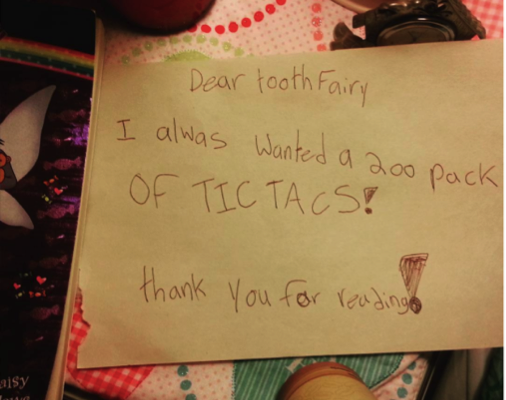 Dear toothFairy
I alwas wanted a 200 pack
OF TIC TACS!
thank you for reading!
aisy